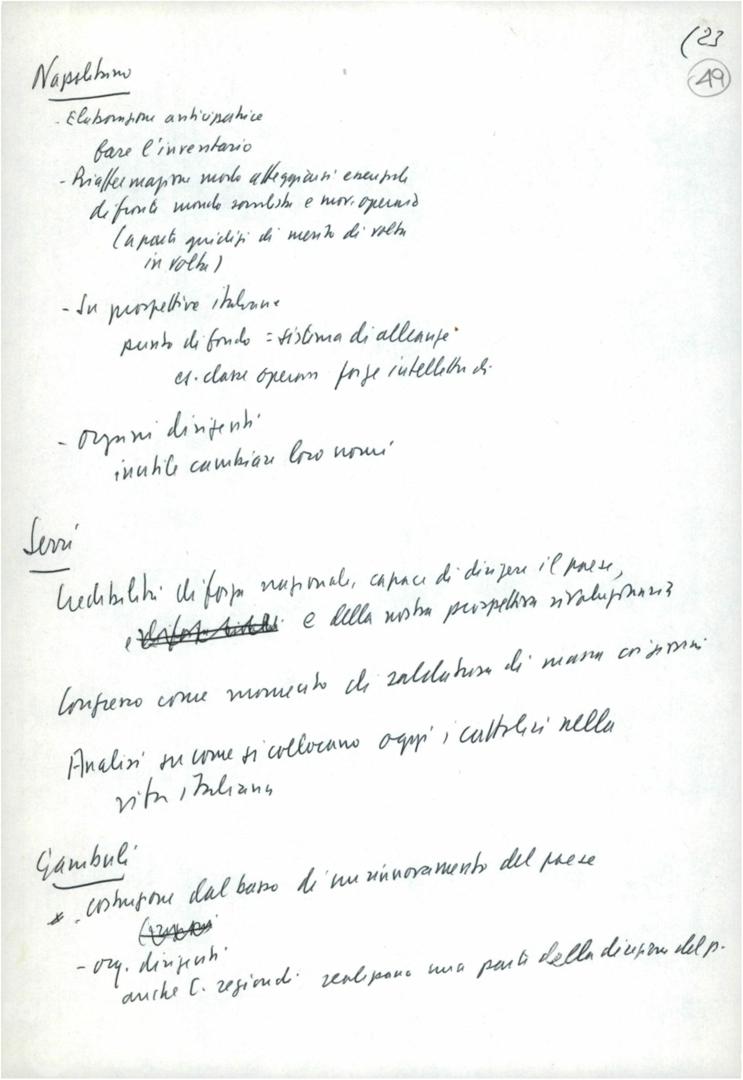 (23
49
Napolitano
- Elaborazione anticipatrice
fare l'inventario
- Riaffermazione modo atteggiarsi essenziale
di fronte mondo socialista e mov. operaio
(a parte giudizi di merito di volta
in volta)
- Su prospettive italiane
punto di fondo = sistema di alleanze
es. classe operaia forze intellettuali
- Organi dirigenti
inutile cambiare loro nomi
Serri
Credibilità di forza nazionale, capace di dirigere il paese,
e e della nostra prospettiva rivoluzionaria
Congresso come momento di saldatura di massa coi giovani
Analisi su come si collocano oggi i cattolici nella
vita italiana
Gambuli
* - costruzione dal basso di un rinnovamento del paese
- org. dirigenti
anche C. regionali realizzano una parte della direzione del p.